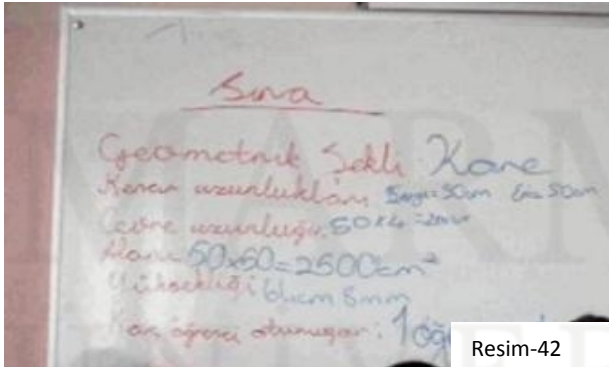 Sıra
Geometrik Şekli Kare
Kenar uzunlukları 50cm 50cm
Çevre uzunluğu: 50x4=
Alanı 50x50=2500cm²
Yüksekliği: 64cm 8mm
Kaç öğrenci oturuyor: 1
Resim-42